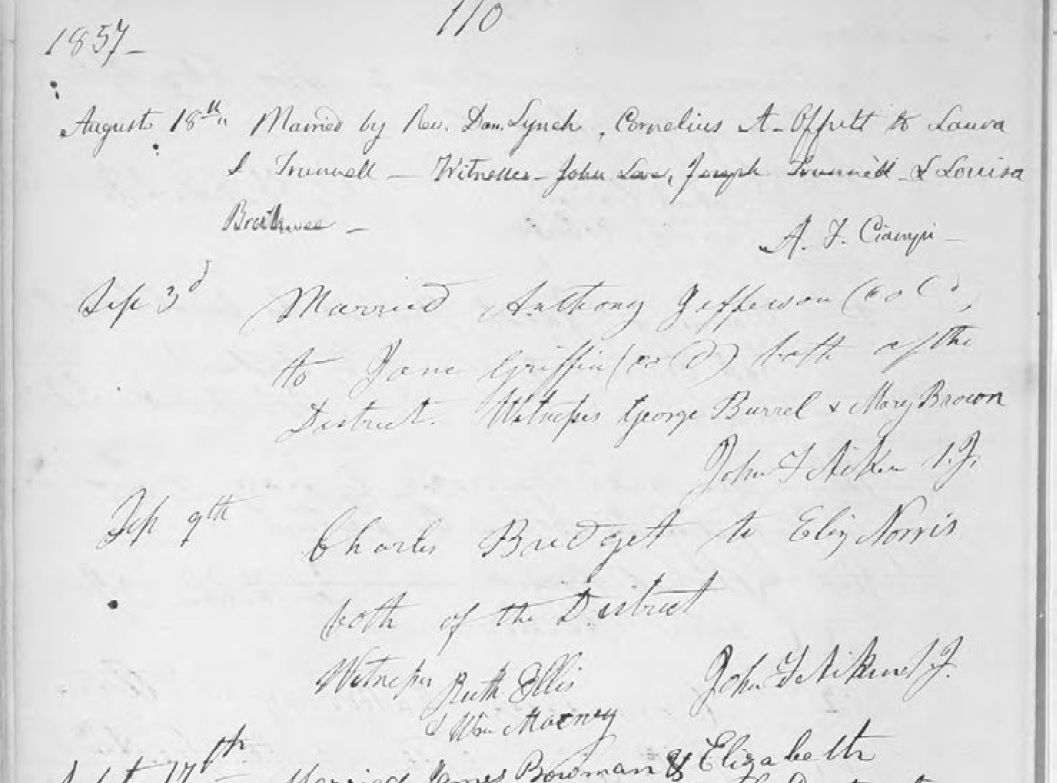 110
1857-
August 18th „ Married by Rev. Dan. Lynch, Cornelius A- Offutt to Laura
S Trunnell - Witnesses- John Lee, Joseph Trunnell & Louisa
A. F. Ciampi -
Sep 3d Married Anthony Jefferson (col
to Jane Griffin (cold) both of the
District. Witnesses George Burrel & Mary Brown
John F Aiken S.J.
Sep 9th Charles Bridget to Eliz Norris
both of the District
Witnesses Ruth Ellis John F Aiken S.J.
& Wm
17th Married James Bowman & Elizabeth